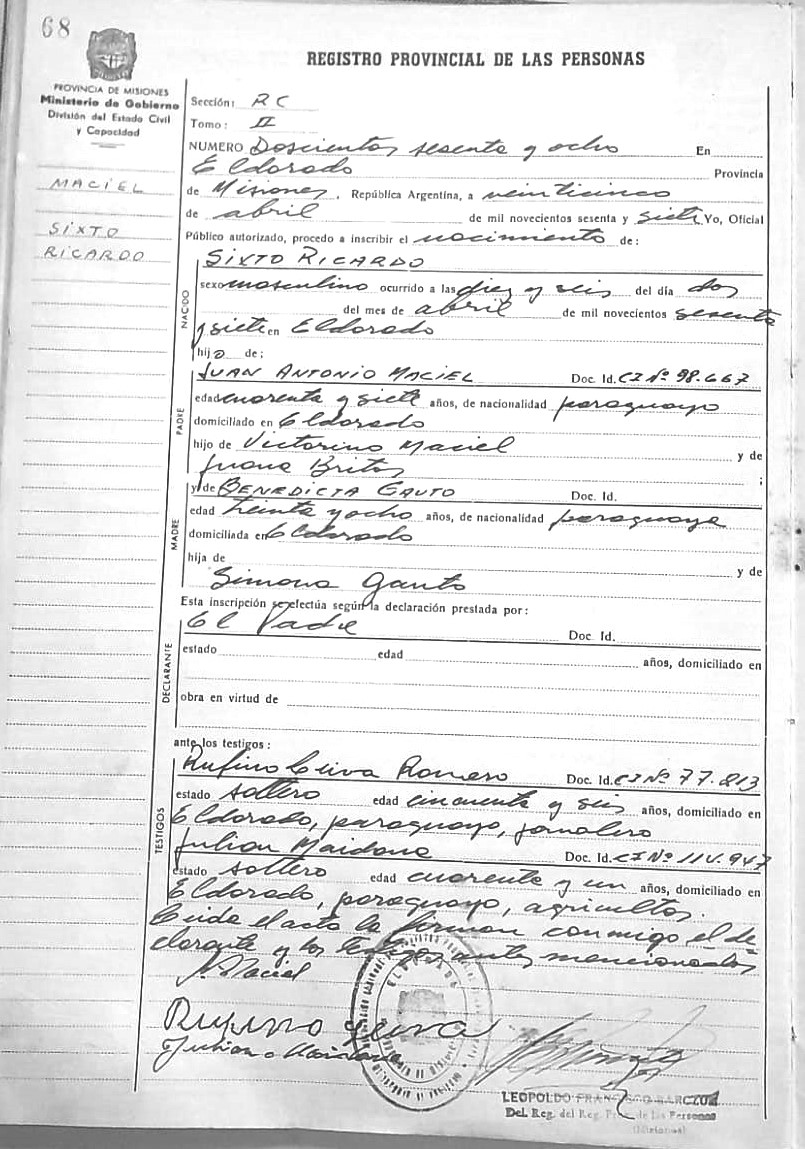 68
REGISTRO PROVINCIAL DE LAS PERSONAS
PROVINCIA DE MISIONES
Ministerio de Gobierno
División del Estado Civil
y Capacidad
MACIEL
SIXTO
RICARDO
Sección: RC
Tomo: II
NUMERO Doscientos sesenta y ocho En
Eldorado Provincia
de Misiones, República Argentina, a veinticinco
de abril de mil novecientos sesenta y siete Yo, Oficial
Público autorizado, procedo a inscribir el nacimiento de:
NACIDO
SIXTO RICARDO
sexo masculino ocurrido a las diez y seis del día dos
del mes de abril de mil novecientos sesenta
y siete en Eldorado
hijo de:
PADRE
JUAN ANTONIO MACIEL Doc. Id. CI Nº 98.667
edad cuarenta y siete años, de nacionalidad paraguayo
domiciliado en Eldorado
hijo de Victorino Maciel y de
Juana Britos ;
MADRE
y de BENEDICTA GAUTO Doc. Id.
edad treinta y ocho años, de nacionalidad paraguaya
domiciliada en Eldorado
hija de y de
Simona Gauto
Esta inscripción se efectúa según la declaración prestada por:
DECLARANTE
El Padre Doc. Id.
estado edad años, domiciliado en
obra en virtud de
ante los testigos:
TESTIGOS
Rufino Leiva Romero Doc. Id. CI Nº 77.813
estado soltero edad cincuenta y seis años, domiciliado en
Eldorado, paraguayo, jornalero
Julian Maidana Doc. Id. CI Nº 114.947
estado soltero edad cuarenta y un años, domiciliado en
Eldorado, paraguayo, agricultor.
Leida el acta la firman conmigo el de-
clarante y los testigos antes mencionados
Maciel
Rufino Leiva
Julian Maidana
ELDORADO
LEOPOLDO FRANCISCO
Del. Reg. del Reg. Prov. de las Personas
(Misiones)